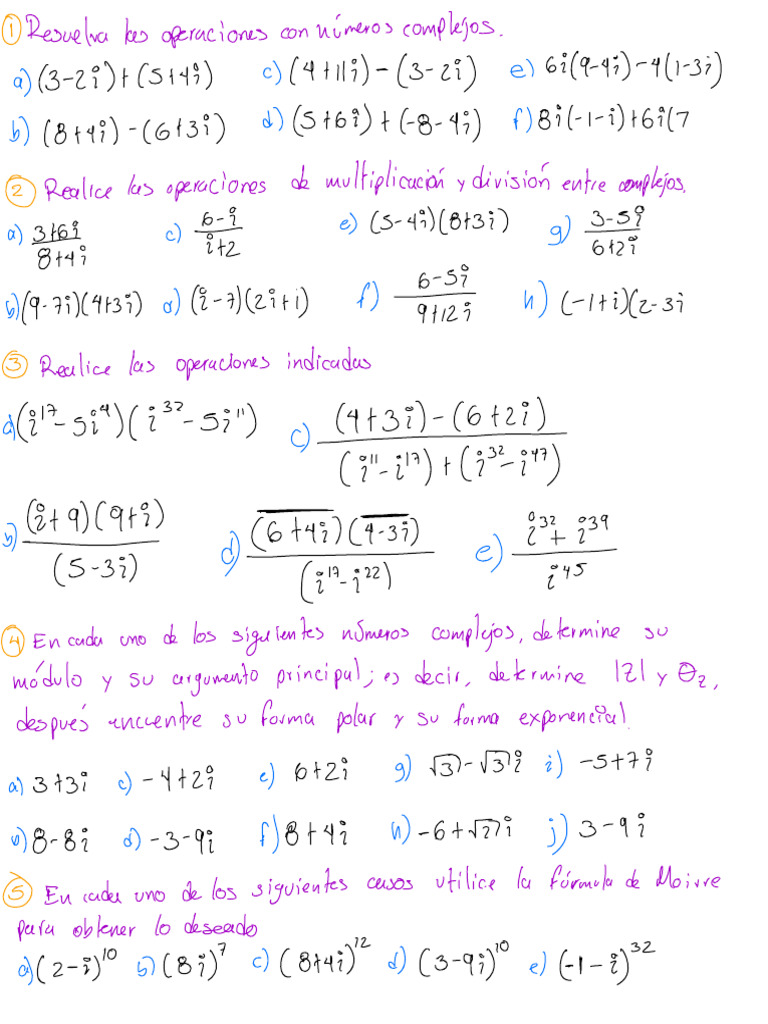 ① Resuelva las operaciones con números complejos.
a) (3-2i)+(5+4i) c) (4+11i)-(3-2i) e) 6i(9-4i)-4(1-3i)
b) (8+4i)-(6+3i) d) (5+6i)+(-8-4i) f) 8i(-1-i)+6i(7
② Realice las operaciones de multiplicación y división entre complejos.
a) (3+6i)/(8+4i) c) (6-i)/(i+2) e) (5-4i)(8+3i) g) (3-5i)/(6+2i)
b) (9-7i)(4+3i) d) (i-7)(2i+1) f) (6-5i)/(9+12i) h) (-1+i)(2-3i
③ Realice las operaciones indicadas
a) (i¹⁷-5i⁴)(i³²-5i¹¹) c) ((4+3i)-(6+2i))/((i¹¹-i¹⁷)+(i³²-i⁴⁷))
b) ((i+9)(9+i))/(5-3i) d) (\overline{(6+4i)}\overline{(4-3i)})/(i¹⁷-i²²) e) (i³²+i³⁹)/i⁴⁵
④ En cada uno de los siguientes números complejos, determine su
módulo y su argumento principal; es decir, determine |Z| y θz,
después encuentre su forma polar y su forma exponencial.
a) 3+3i c) -4+2i e) 6+2i g) √3-√3i i) -5+7i
b) 8-8i d) -3-9i f) 8+4i h) -6+√i j) 3-9i
⑤ En cada uno de los siguientes casos utilice la fórmula de Moivre
para obtener lo deseado
a) (2-i)¹⁰ b) (8i)⁷ c) (8+4i)¹² d) (3-9i)¹⁰ e) (-1-i)³²